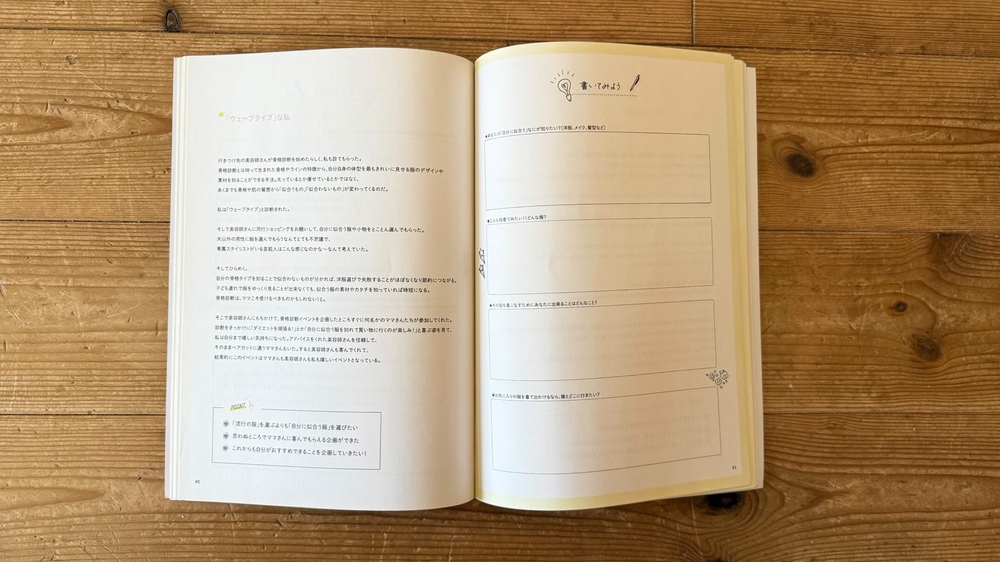 「ウェーブタイプ」な私
行きつけ先の美容師さんが骨格診断を始めたらしく、私も診てもらった。
骨格診断とは持って生まれた骨格やラインの特徴から、自分自身の体型を最もきれいに見せる服のデザインや
素材を知ることができる手法。太っているとか痩せているとかではなく、
あくまでも骨格や肌の質感から「似合うもの」「似合わないもの」が変わってくるのだ。
私は「ウェーブタイプ」と診断された。
そして美容師さんに同行ショッピングをお願いして、自分に似合う服や小物をとことん選んでもらった。
夫以外の男性に服を選んでもらうなんてとても不思議で、
専属スタイリストがいる芸能人はこんな感じなのかな〜なんて考えていた。
そしてひらめく。
自分の骨格タイプを知ることで似合わないものが分かれば、洋服選びで失敗することがほぼなくなり節約につながる。
子ども連れで服をゆっくり見ることが出来なくても、似合う服の素材やカタチを知っていれば時短になる。
骨格診断は、ママこそ受けるべきものかもしれない!と。
そこで美容師さんにもちかけて、骨格診断イベントを企画したところすぐに何名かのママさんたちが参加してくれた。
診断をきっかけに「ダイエットを頑張る!」とか「自分に似合う服を知れて買い物に行くのが楽しみ!」と喜ぶ姿を見て、
私は自分まで嬉しい気持ちになった。アドバイスをくれた美容師さんを信頼して、
そのままヘアカットに通うママさんもいた。すると美容師さんも喜んでくれて、
結果的にこのイベントはママさんも美容師さんも私も嬉しいイベントとなっている。
POINT
「流行の服」を選ぶよりも「自分に似合う服」を選びたい
思わぬところでママさんに喜んでもらえる企画ができた
これからも自分がおすすめできることを企画していきたい!
40
書いてみよう
あなたは「自分に似合う」なにが知りたい?(洋服、メイク、髪型など)
こんな服着てみたい!どんな服?
その服を着こなすためにあなたに出来ることはどんなこと?
お気に入りの服を着て出かけるなら、誰とどこに行きたい?
41